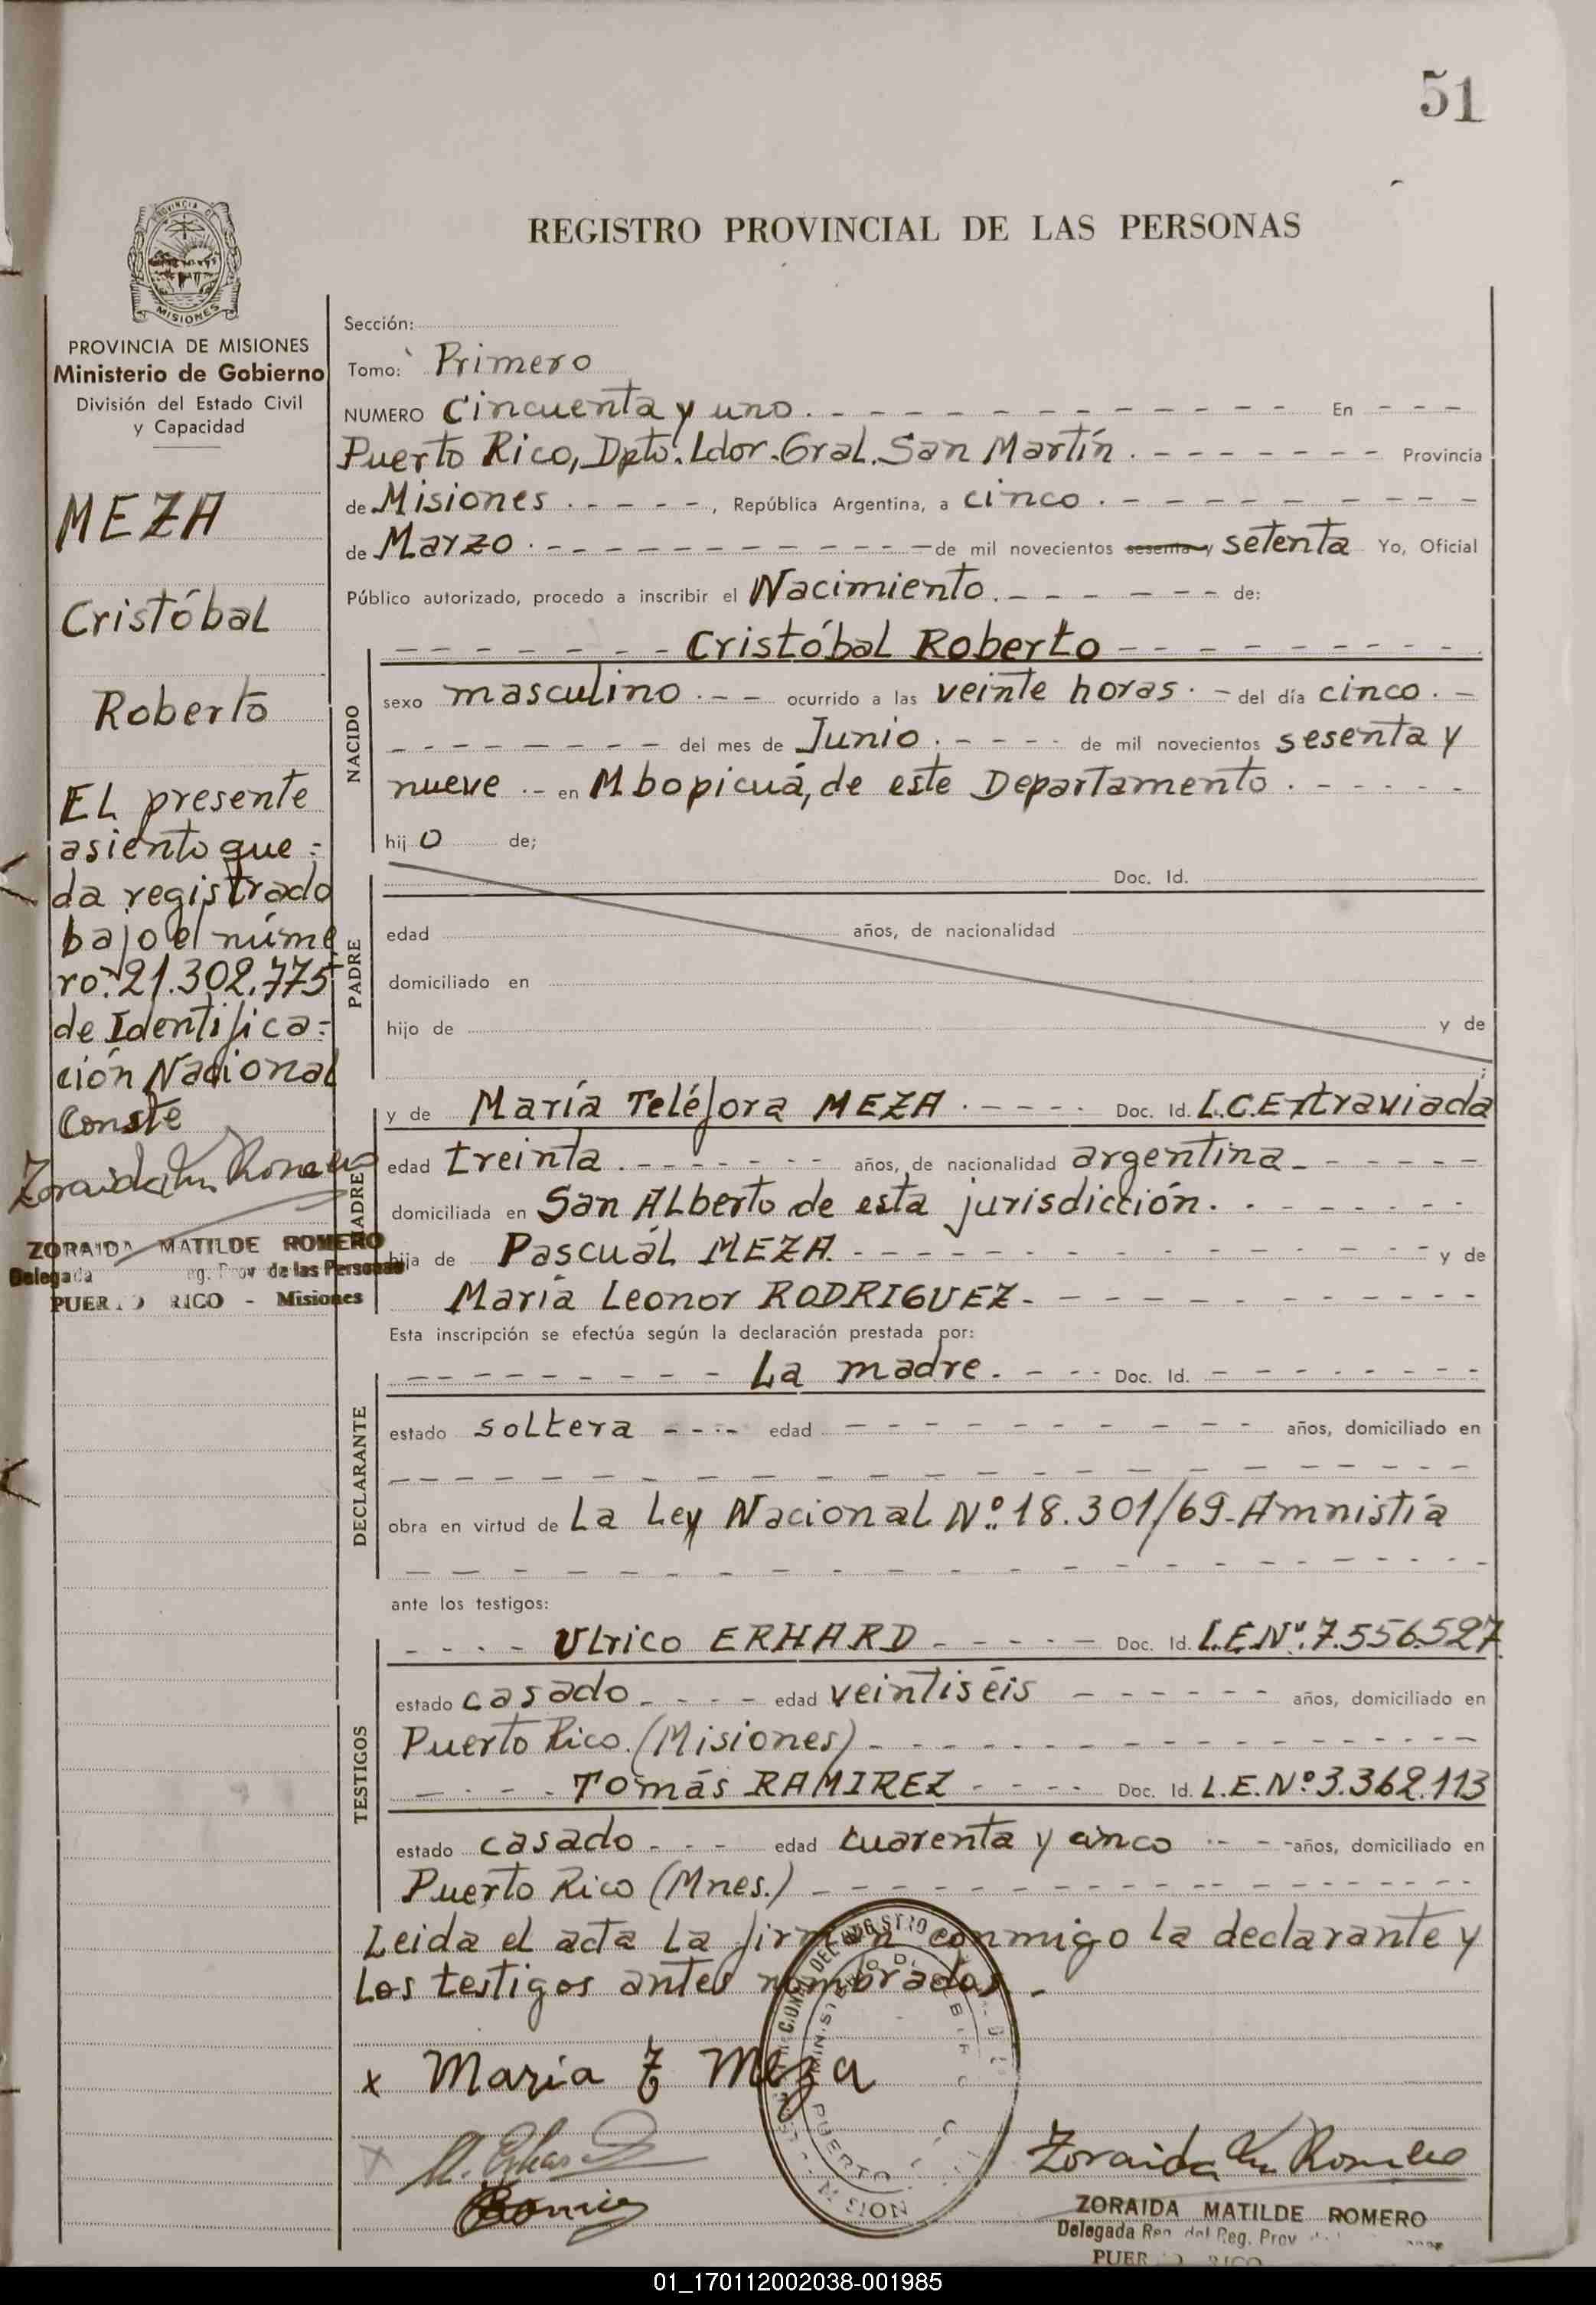 51
PROVINCIA DE
MISIONES
REGISTRO PROVINCIAL DE LAS PERSONAS
PROVINCIA DE MISIONES
Ministerio de Gobierno
División del Estado Civil
y Capacidad
MEZA
Cristóbal
Roberto
EL presente
asiento que=
da registrado
bajo el núme
ro: 21.302.775
de Identifica=
ción Nacional
Conste
ZORAIDA MATILDE ROMERO
Delegada eg. Prov de las Personas
PUERTO RICO - Misiones
Sección:
Tomo: Primero
NUMERO Cincuenta y uno. - - - En - - -
Puerto Rico, Dpto. Ldor. Gral. San Martín. - - - Provincia
de Misiones. - - -, República Argentina, a cinco. - - -
de Marzo. - - - de mil novecientos sesenta y setenta Yo, Oficial
Público autorizado, procedo a inscribir el Nacimiento. - - - de:
NACIDO
- - - Cristóbal Roberto - - -
sexo masculino. - - ocurrido a las veinte horas. - del día cinco. -
- - - del mes de Junio. - - - de mil novecientos sesenta y
nueve. - en Mbopicuá, de este Departamento. - - -
hijo de;
PADRE
Doc. Id.
edad años, de nacionalidad
domiciliado en
hijo de y de
MADRE
y de María Teléfora MEZA. - - - Doc. Id. L.C. Extraviada
edad treinta. - - - años, de nacionalidad argentina - - -
domiciliada en San ALberto de esta jurisdicción. - - -
hija de Pascual MEZA - - - y de
María Leonor RODRIGUEZ - - -
Esta inscripción se efectúa según la declaración prestada por:
DECLARANTE
- - - La madre. - - - Doc. Id. - - -
estado soltera - - - edad - - - años, domiciliado en
- - -
obra en virtud de La Ley Nacional Nº 18.301/69-Amnistía
- - -
ante los testigos:
TESTIGOS
- - - Ulrico ERHARD - - - Doc. Id. L.E.Nº 7.556.527
estado casado - - - edad veintiséis - - - años, domiciliado en
Puerto Rico. (Misiones) - - -
- - - Tomás RAMIREZ - - - Doc. Id. L.E.Nº 3.362.113
estado casado - - - edad cuarenta y cinco - - - años, domiciliado en
Puerto Rico (Mnes.) - - -
Leida el acta la firman conmigo la declarante y
los testigos antes nombrados. -
x Maria T Meza
Zoraida M. Romero
ZORAIDA MATILDE ROMERO
Delegada Reg. Prov
01_170112002038-001985